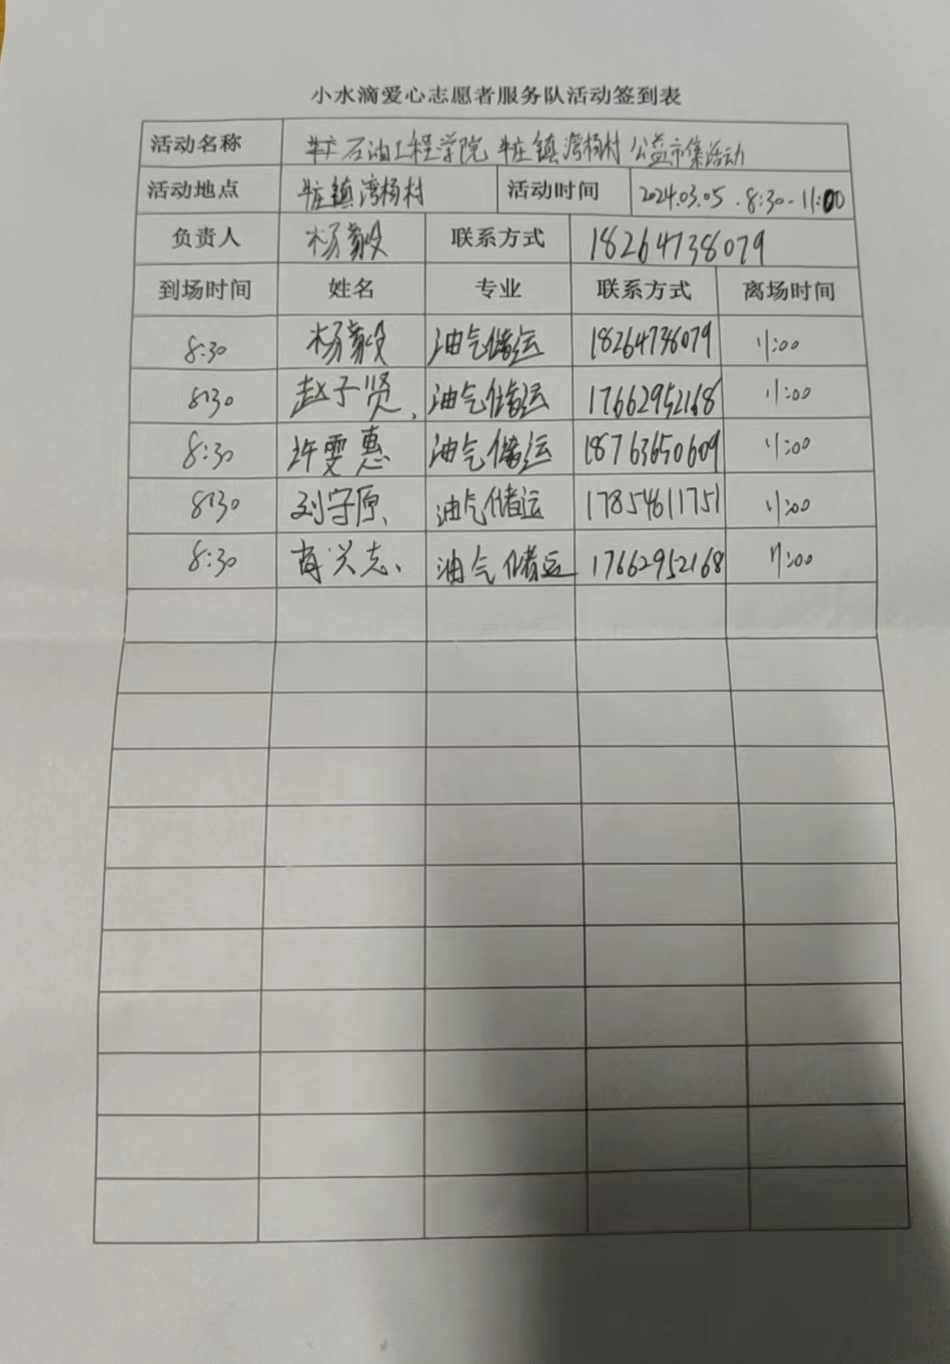 小水滴爱心志愿者服务队活动签到表
活动名称 石油工程学院 牛庄镇湾杨村 公益市集活动
活动地点 牛庄镇湾杨村 活动时间 2024.03.05.8:30-11:00
负责人 杨毅 联系方式 18264738079
到场时间 姓名 专业 联系方式 离场时间
8:30 杨毅 油气储运 18264738079 11:00
8:30 赵子贤 油气储运 17662952168 11:00
8:30 许雯惠 油气储运 18763650609 11:00
8:30 刘守原 油气储运 17854611751 11:00
8:30 兴志 油气储运 17662952168 11:00